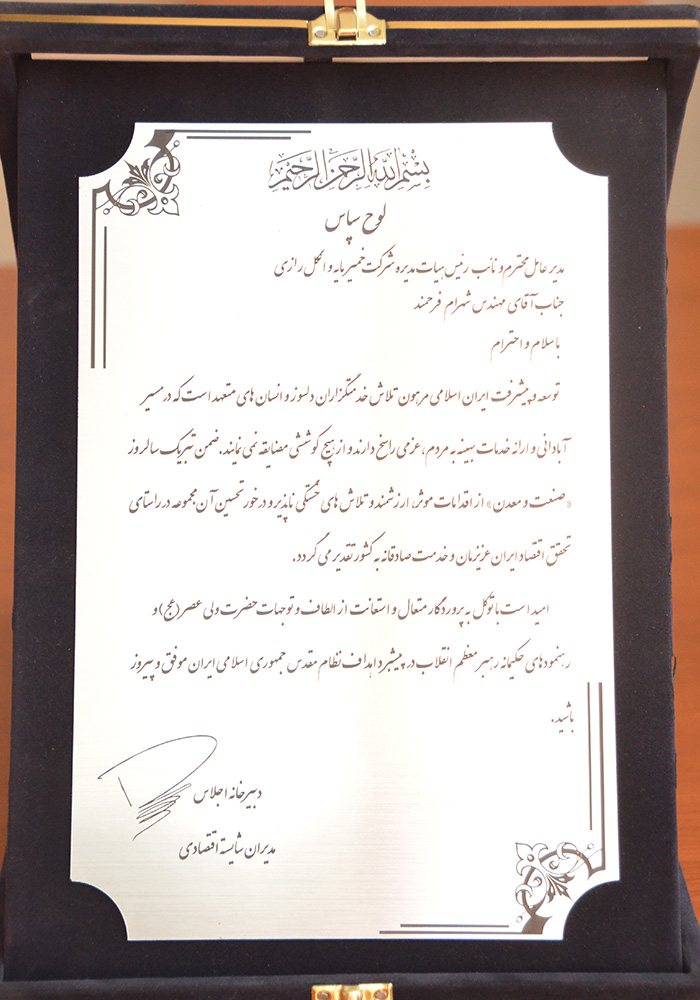 بسم الله الرحمن الرحیم
لوح سپاس
مدیر عامل محترم و نائب رئیس هیات مدیره شرکت خمیر مایه و الکل رازی
جناب آقای مهندس شهرام فرحمند
با سلام و احترام
توسعه و پیشرفت ایران اسلامی مرهون تلاش خدمتگزاران دلسوز و انسان های متعهد است که در مسیر
آبادانی و ارائه خدمات بهینه به مردم، عزمی راسخ دارند و از هیچ کوششی مضایقه نمی نمایند. ضمن تبریک سالروز
«صنعت و معدن» از اقدامات موثر، ارزشمند و تلاش های خستگی ناپذیر و در خور تحسین آن مجموعه در راستای
تحقق اقتصاد ایران عزیزمان و خدمت صادقانه به کشور تقدیر می گردد.
امید است با توکل به پروردگار متعال و استعانت از الطاف و توجهات حضرت ولی عصر (عج) و
رهنمودهای حکیمانه رهبر معظم انقلاب در پیشبرد اهداف نظام مقدس جمهوری اسلامی ایران موفق و پیروز
باشید.
دبیرخانه اجلاس
مدیران شایسته اقتصادی